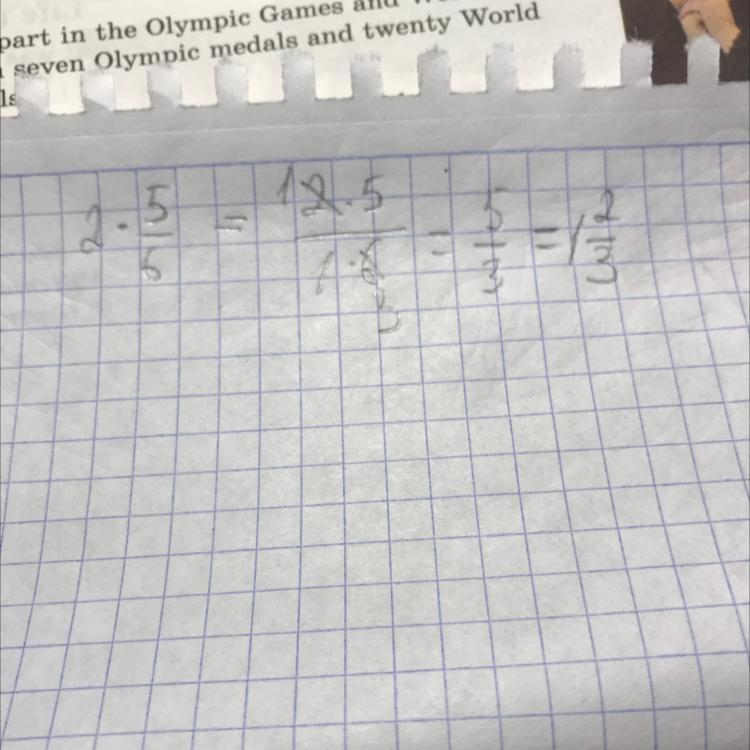 part in the Olympic Games and
seven Olympic medals and twenty World
ls
2 · 5/6 = 12 · 5 / 1 · 6 3 = 5/3 = 1 2/3